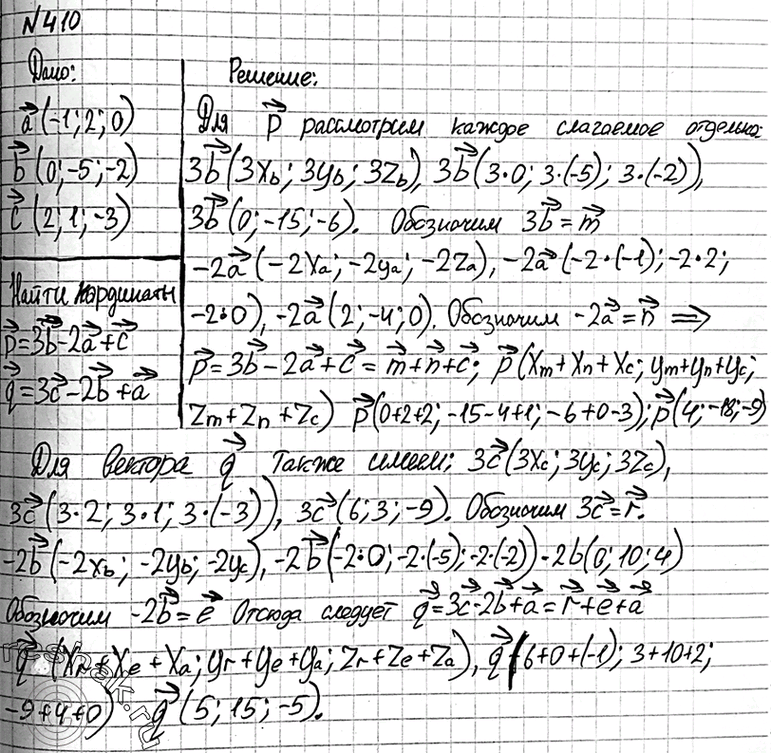 №410
Дано:
a⃗ (-1; 2; 0)
b⃗ (0; -5; -2)
c⃗ (2; 1; -3)
Найти кординаты
p⃗=3b⃗-2a⃗+c⃗
q⃗=3c⃗-2b⃗+a⃗
Решение:
Для p⃗ рассмотрим каждое слагаемое отдельно:
3b⃗(3x_b; 3y_b; 3z_b), 3b⃗(3·0; 3·(-5); 3·(-2)),
3b⃗(0; -15; -6). Обозначим 3b⃗=m⃗
-2a⃗(-2x_a; -2y_a; -2z_a), -2a⃗(-2·(-1); -2·2;
-2·0), -2a⃗(2; -4; 0). Обозначим -2a⃗=n⃗ ⇒
p⃗=3b⃗-2a⃗+c⃗=m⃗+n⃗+c⃗; p⃗(x_m+x_n+x_c; y_m+y_n+y_c;
z_m+z_n+z_c) p⃗(0+2+2; -15-4+1; -6+0-3); p⃗(4; -18; -9)
Для вектора q⃗ также имеем: 3c⃗(3x_c; 3y_c; 3z_c),
3c⃗(3·2; 3·1; 3·(-3)), 3c⃗(6; 3; -9). Обозначим 3c⃗=r⃗.
-2b⃗(-2x_b; -2y_b; -2y_c), -2b⃗(-2·0; -2·(-5); -2·(-2)) -2b(0; 10; 4)
Обозначим -2b⃗=e⃗ Отсюда следует q⃗=3c⃗-2b⃗+a⃗=r⃗+e⃗+a⃗
q⃗ (x_r+x_e+x_a; y_r+y_e+y_a; z_r+z_e+z_a), q⃗(6+0+(-1); 3+10+2;
-9+4+0) q⃗ (5; 15; -5).
reshak.ru